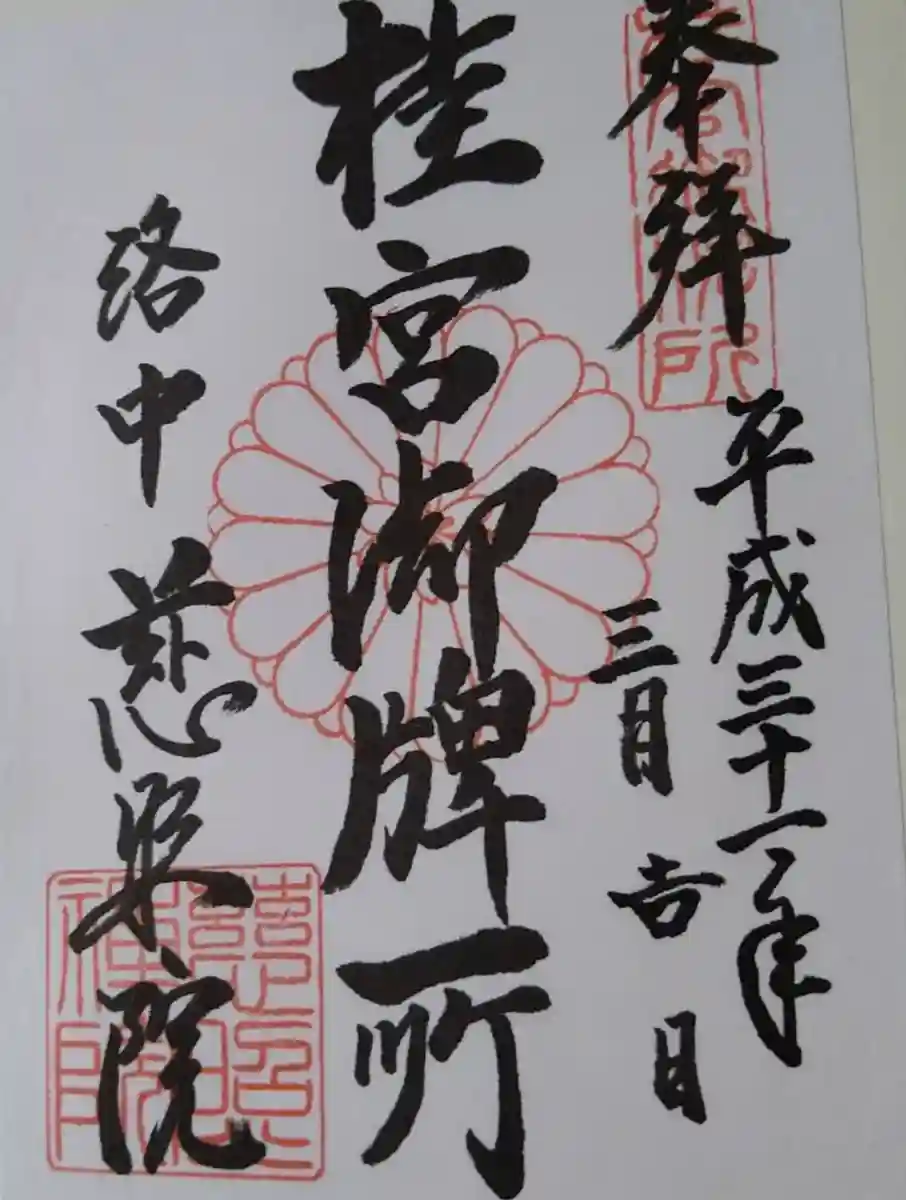 奉拝
平成三十一年
三月 吉日
桂宮御牌所
洛中 慈照院